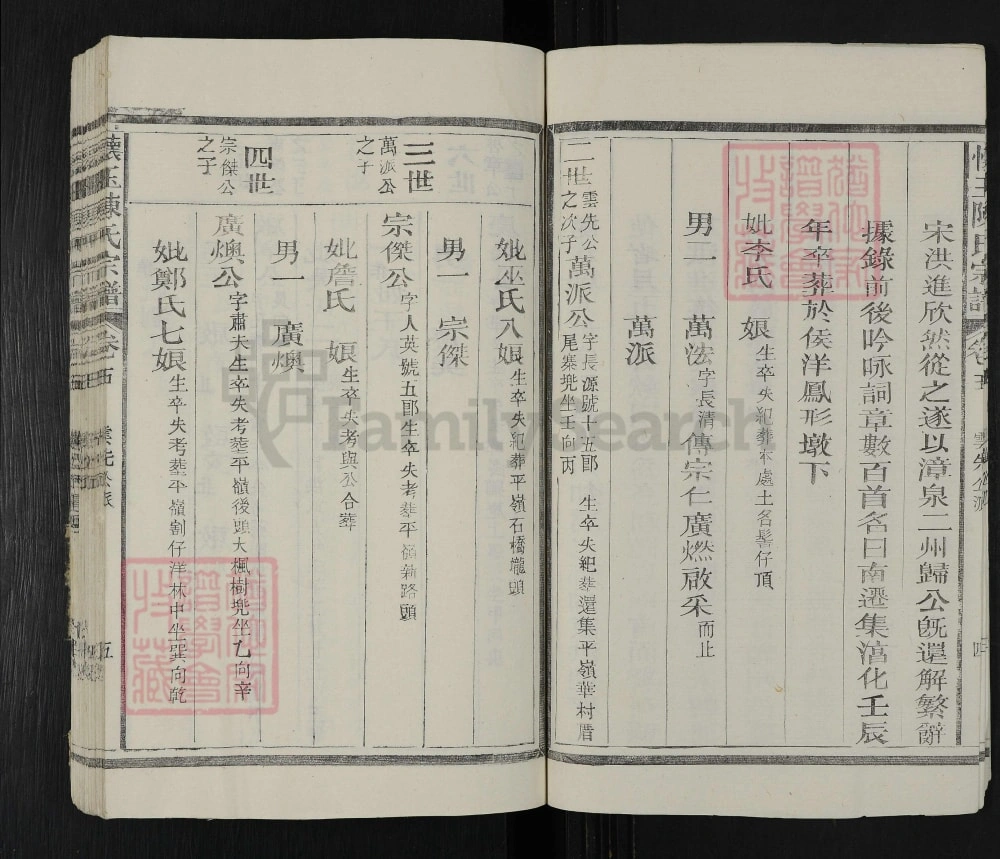 宋洪進欣然從之遂以漳泉二州歸公旣還解繁辭
據錄前後吟咏詞章數百首名曰南遷集淯化壬辰
年卒葬於侯洋鳳形墩下
妣李氏 娘 生卒失紀葬本處土名髻仔頂
男二 萬法 字長清傳宗仁廣燃啟采而止
萬派
二世 雲先公之次子 萬派公 字長源號十五郎 生卒失紀葬還集平嶺華村厝尾寨兠坐壬向丙
妣巫氏八娘 生卒失紀葬平嶺石橋壠頭
男一 宗傑
三世 萬派公之子
宗傑公 字人英號五郎生卒失考葬平嶺新路頭
妣詹氏 娘 生卒失考與公合葬
男一 廣燠
四世 宗傑公之子
廣燠公 字肅夫生卒失考葬平嶺後頭大楓樹兠坐乙向辛
妣鄭氏七娘 生卒失考葬平嶺割仔洋林中坐巽向乾
懷玉陳氏宗譜 卷五 雲先公派 五
FamilySearch